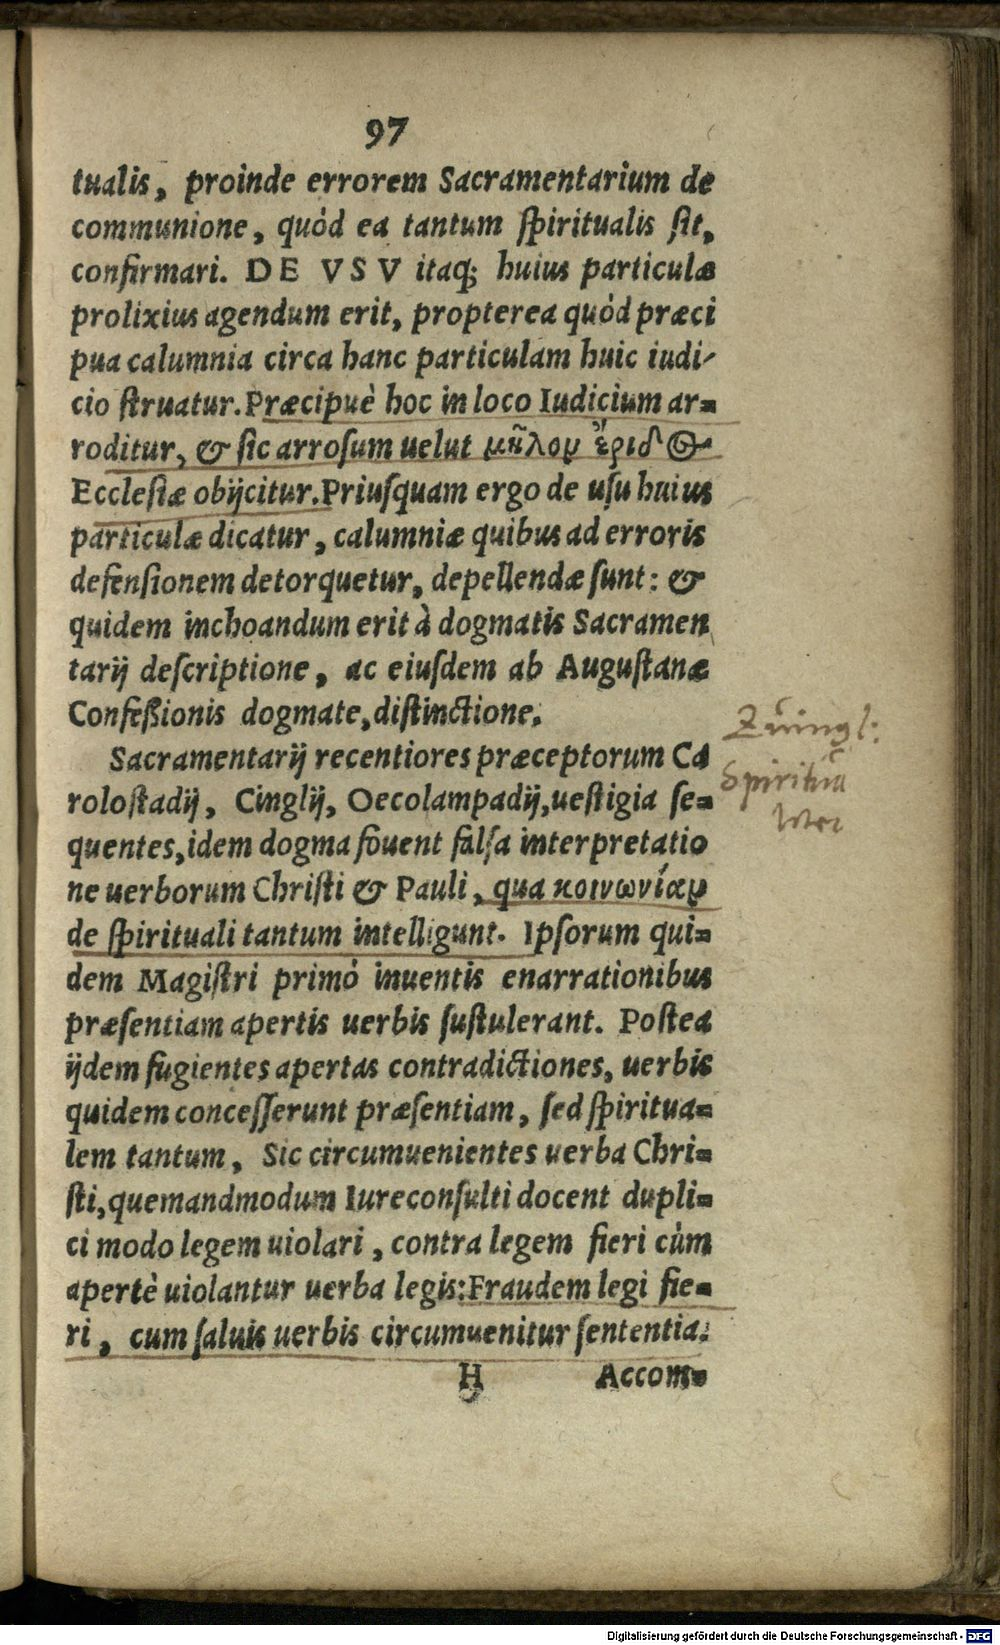 97
tualis, proinde errorem Sacramentarium de
communione, quòd ea tantum ſpiritualis ſit,
confirmari. DE VSV itaq; huius particulæ
prolixius agendum erit, propterea quòd præci
pua calumnia circa hanc particulam huic iudi-
cio ſtruatur. Præcipuè hoc in loco Iudicium ar=
roditur, & ſic arroſum uelut μῆλομ ἔριδος
Eccleſiæ obijcitur. Priuſquam ergo de uſu huius
particulæ dicatur, calumniæ quibus ad erroris
defenſionem detorquetur, depellendæ ſunt: &
quidem inchoandum erit à dogmatis Sacramen
tarij deſcriptione, ac eiuſdem ab Auguſtanæ
Confeßionis dogmate, diſtinctione.
Sacramentarij recentiores præceptorum Ca
roloſtadij, Cinglij, Oecolampadij, ueſtigia ſe=
quentes, idem dogma fouent falſa interpretatio
ne uerborum Chriſti & Pauli, qua κοινωνίαμ
de ſpirituali tantum intelligunt. Ipſorum qui=
dem Magiſtri primò inuentis enarrationibus
præſentiam apertis uerbis ſuſtulerant. Poſtea
ijdem fugientes apertas contradictiones, uerbis
quidem conceſſerunt præſentiam, ſed ſpiritua=
lem tantum, Sic circumuenientes uerba Chri=
ſti, quemandmodum Iureconſulti docent dupli=
ci modo legem uiolari, contra legem fieri cùm
apertè uiolantur uerba legis: Fraudem legi fie=
ri, cum ſaluis uerbis circumuenitur ſententia.
H Accom=
Zuingl:
Digitalisierung gefördert durch die Deutsche Forschungsgemeinschaft - DFG